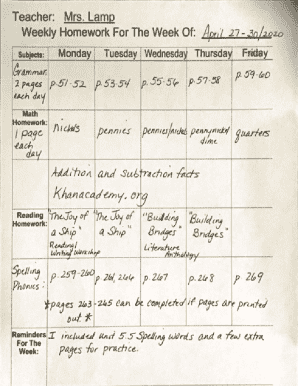 Teacher: Mrs. Lamp
Weekly Homework For The Week Of: April 27-30/2020
Subjects: Monday Tuesday Wednesday Thursday Friday
Grammar 2 pages each day p.51-52 p.53-54 p.55-56 p.57-58 p.59-60
Math Homework: 1 page each day Nickels pennies pennies/nickel penny/nickel/dime quarters
Addition and Subtraction facts
Khanacademy.org
Reading Homework: "The Joy of a Ship" "The Joy of a Ship" "Building Bridges" "Building Bridges"
Reading/Writing Workshop Literature Anthology
Spelling Phonics: p.259-260 p.261, p.267 p.268 p 269
*pages 263-265 can be completed if pages are printed
out *
Reminders For The Week: I included unit 5.5 Spelling words and a few extra
pages for practice.